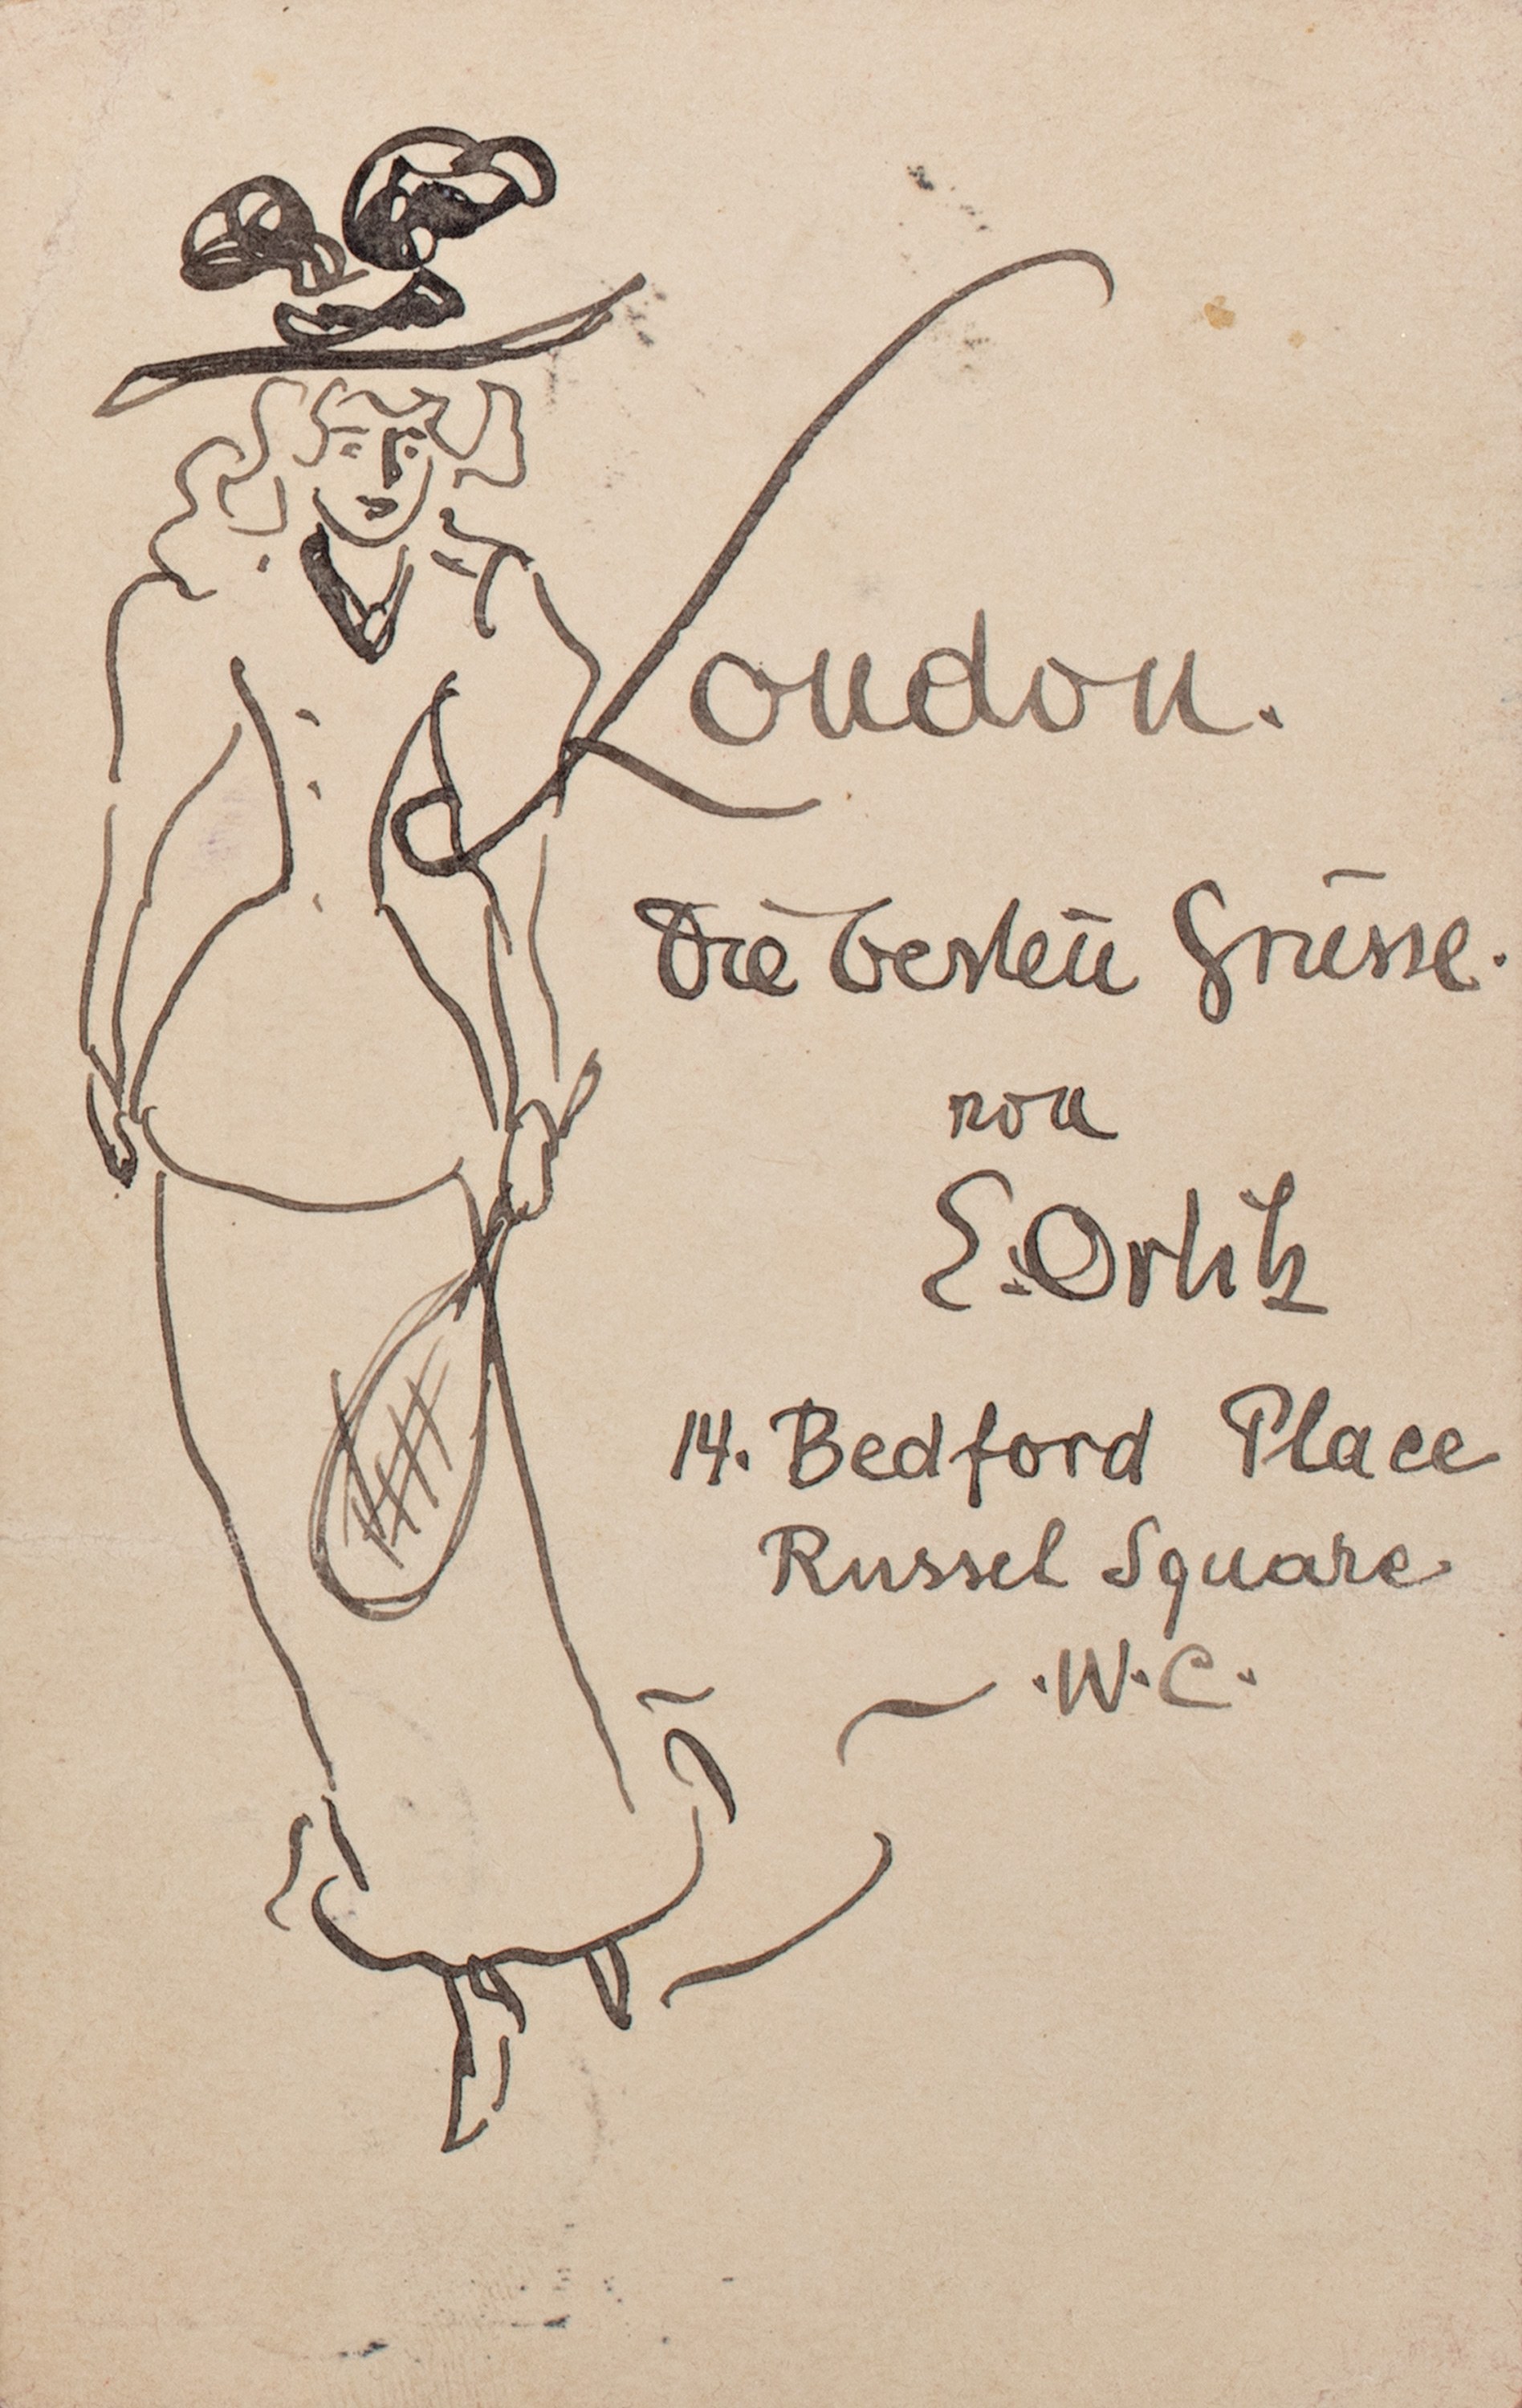 London.
Die besten Grüsse.
von
E. Orlik
14. Bedford Place
Russel Square
W.C.